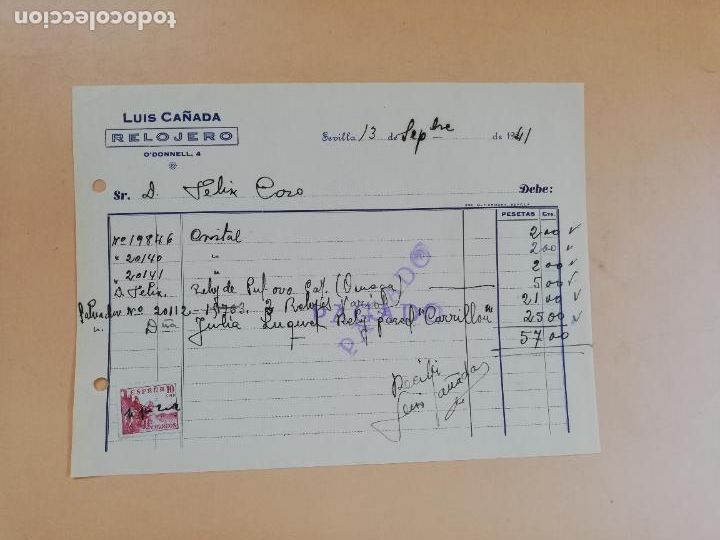 todocoleccion
LUIS CAÑADA
RELOJERO
O'DONNELL, 4
Sevilla 13 de Sepbre de 1941
Sr. D. Felix Cozo Debe:
PESETAS Cts.
Nº 19846 Cristal 2 00
" 20140 " 2 00
" 20141 " 2 00
D. Felix. Reloj de Pulsera Cab. (Omega) 5 00
Nº 20112 - 2 Relojes 21 00
" Dña Julia Reloj pared "Carrillon" 25 00
57 00
PAGADO
PAGADO
Recibí
Luis Cañada
ESPAÑA 10
CTS
CORREOS
todocoleccion